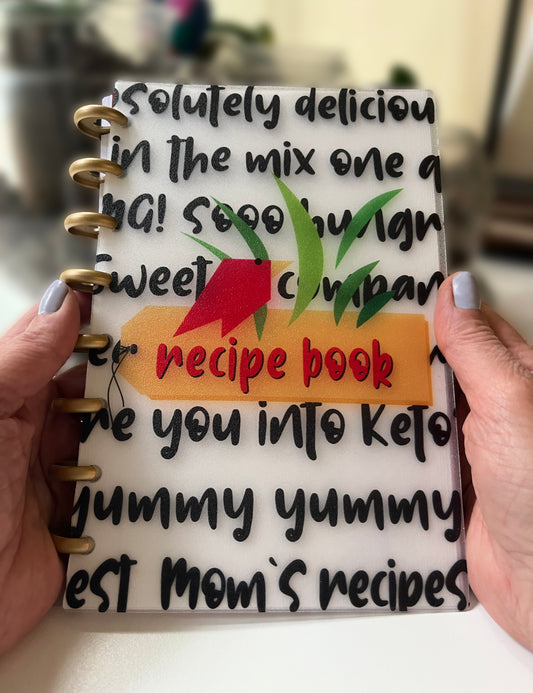 bsolutely deliciou
in the mix one a
MG! Sooo hungr
Sweet compan
recipe book
re you into Keto
yummy yummy
est Mom`s recipes